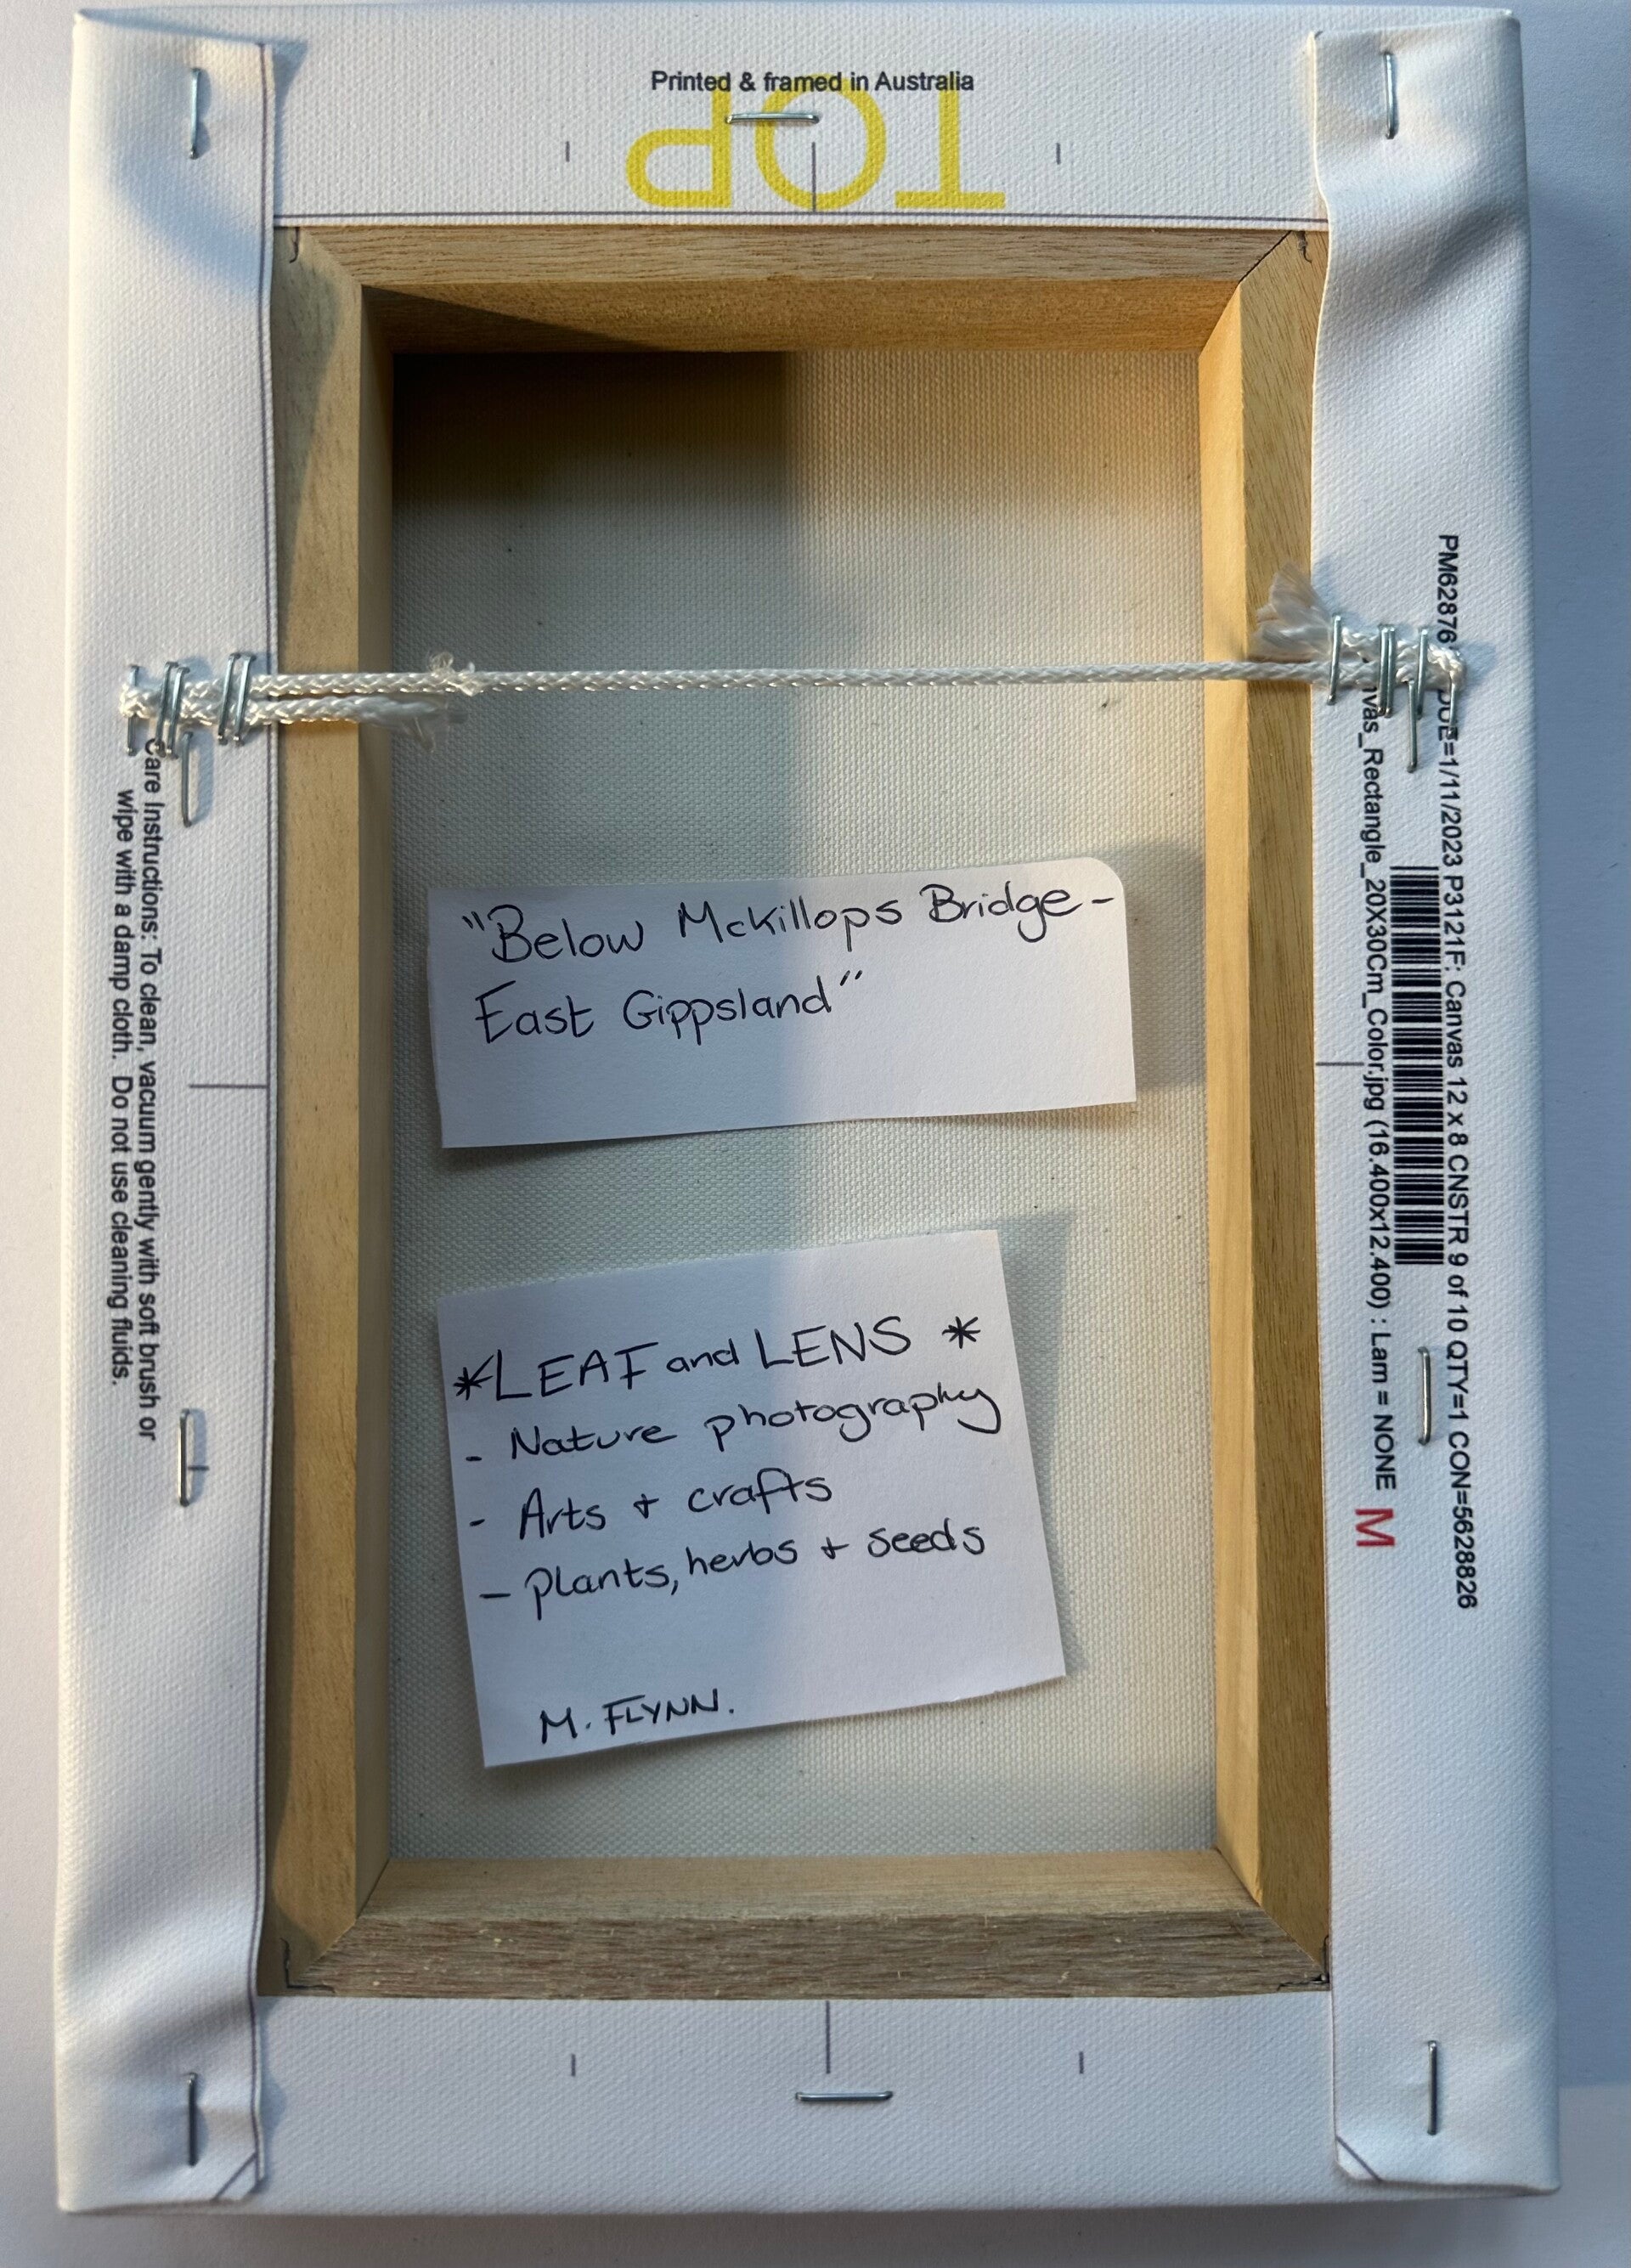 Printed & framed in Australia
TOP
"Below McKillops Bridge -
East Gippsland"
*LEAF and LENS *
- Nature photography
- Arts + crafts
- Plants, herbs + seeds
M. FLYNN.
Care Instructions: To clean, vacuum gently with soft brush or
wipe with a damp cloth. Do not use cleaning fluids.
PM62876 DUE=1/11/2023 P3121F: Canvas 12 x 8 CNSTR 9 of 10 QTY=1 CON=5628826
nvas_Rectangle_20X30Cm_Color.jpg (16.400x12.400) : Lam = NONE M